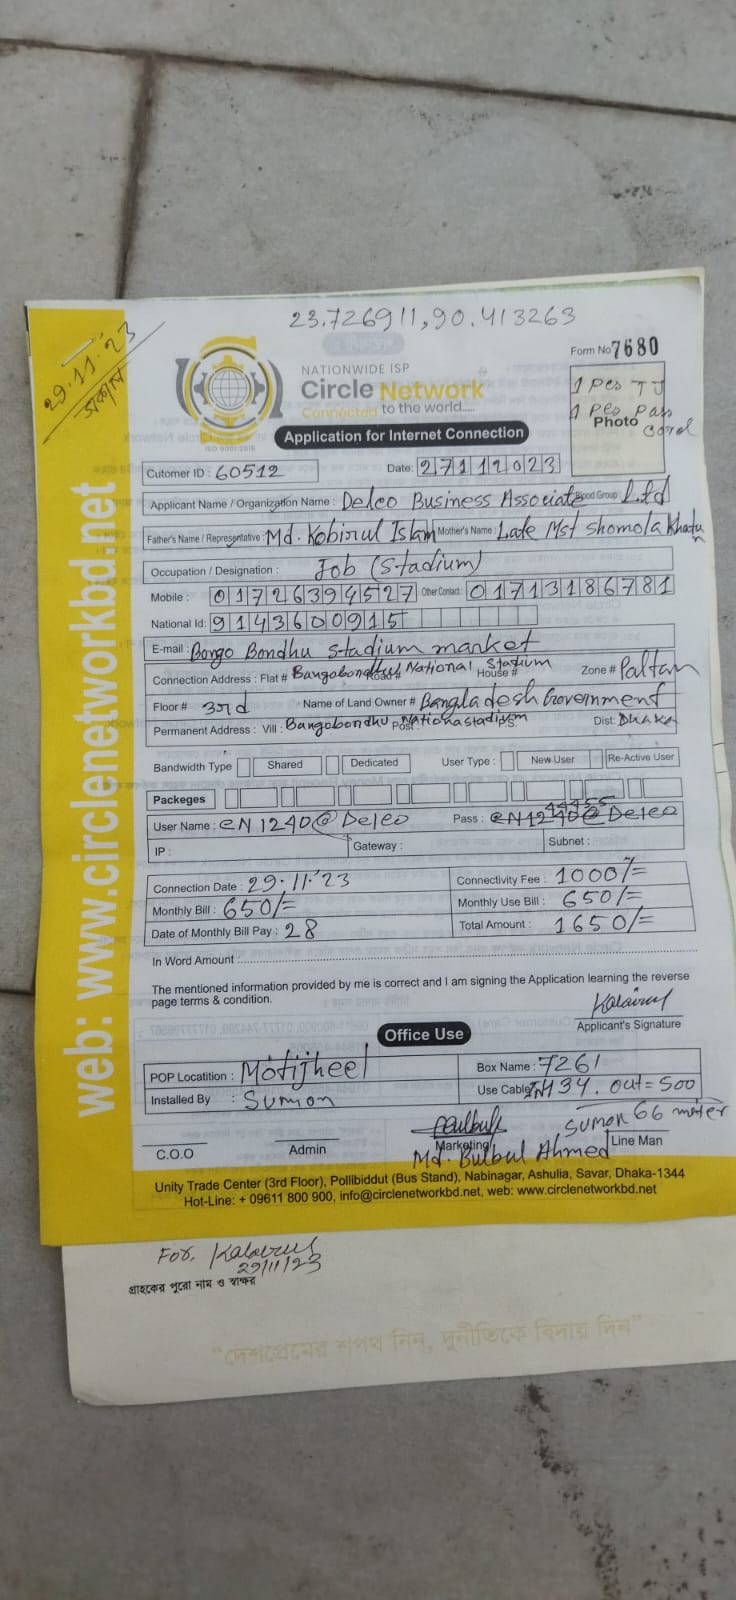 23.726911,90.413263
29.11.23
Form No 7680
NATIONWIDE ISP
Circle Network
Connected to the world.....
ISO 9001:2015
1 Pcs
Photo
Application for Internet Connection
Cutomer ID : 60512 Date: 27112023
Applicant Name / Organization Name : Delco Business Associate Blood Group : Ltd
Father's Name / Representative : Md. Kobirul Islam Mother's Name : Late Mst Shomola Khatun
Occupation / Designation : Job (Stadium)
Mobile : 01726394527 Other Contact: 01713186781
National Id: 9143600915
E-mail : Bongo Bondhu Stadium market
Connection Address : Flat # Bangobondhu Road # National Stadium House # Zone # Paltan
Floor # 3rd Name of Land Owner # Bangladesh Government
Permanent Address : Vill : Bangobondhu Post : National stadium P.S: Dist: Dhaka
Bandwidth Type Shared Dedicated User Type : New User Re-Active User
Packeges
44455
User Name : CN1240@Delco Pass : CN1240@Delco
IP : Gateway : Subnet :
Connection Date : 29.11.'23 Connectivity Fee : 1000/=
Monthly Bill : 650/= Monthly Use Bill : 650/=
Date of Monthly Bill Pay : 28 Total Amount : 1650/=
In Word Amount
The mentioned information provided by me is correct and I am signing the Application learning the reverse
page terms & condition.
Applicant's Signature
Office Use
POP Locatition : Motijheel Box Name : 7261
Installed By : Sumon Use Cable : IN 434. out = 500
Sumon 66 meter
C.O.O Admin Marketing Line Man
Md. Bulbul Ahmed
Unity Trade Center (3rd Floor), Pollibiddut (Bus Stand), Nabinagar, Ashulia, Savar, Dhaka-1344
Hot-Line: + 09611 800 900, info@circlenetworkbd.net, web: www.circlenetworkbd.net
web: www.circlenetworkbd.net
For,
29/11/23
গ্রাহকের পুরো নাম ও স্বাক্ষর
"দেশপ্রেমের শপথ নিন, দুর্নীতিকে বিদায় দিন"